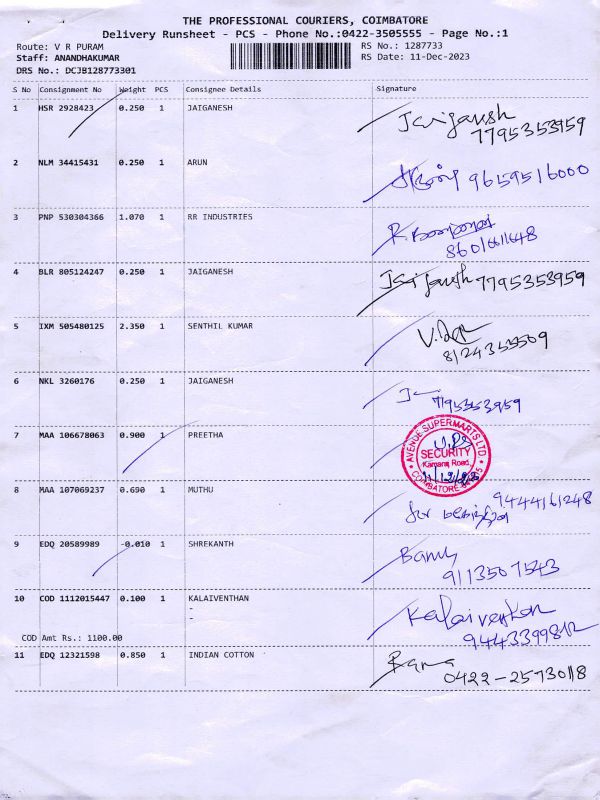 THE PROFESSIONAL COURIERS, COIMBATORE
Delivery Runsheet - PCS - Phone No.:0422-3505555 - Page No.:1
Route: V R PURAM RS No.: 1287733
Staff: ANANDHAKUMAR RS Date: 11-Dec-2023
DRS No.: DCJB128773301
S No Consignment No Weight PCS Consignee Details Signature
1 HSR 2928423 0.250 1 JAIGANESH Jaiganesh
7795353959
2 NLM 34415431 0.250 1 ARUN 9659516000
3 PNP 530304366 1.070 1 RR INDUSTRIES R.
4 BLR 805124247 0.250 1 JAIGANESH Jaiganesh 7795353959
5 IXM 505480125 2.350 1 SENTHIL KUMAR
6 NKL 3260176 0.250 1 JAIGANESH
7795353959
7 MAA 106678063 0.900 1 PREETHA
AVENUE SUPERMARTS LTD.
SECURITY
Kamaraj Road,
11/12/23
COIMBATORE
8 MAA 107069237 0.690 1 MUTHU 9444161248
9 EDQ 20589989 -0.010 1 SHREKANTH
9113507543
10 COD 1112015447 0.100 1 KALAIVENTHAN Kalaiventhan
-
-
COD Amt Rs.: 1100.00
11 EDQ 12321598 0.850 1 INDIAN COTTON Bama
0422-2573018